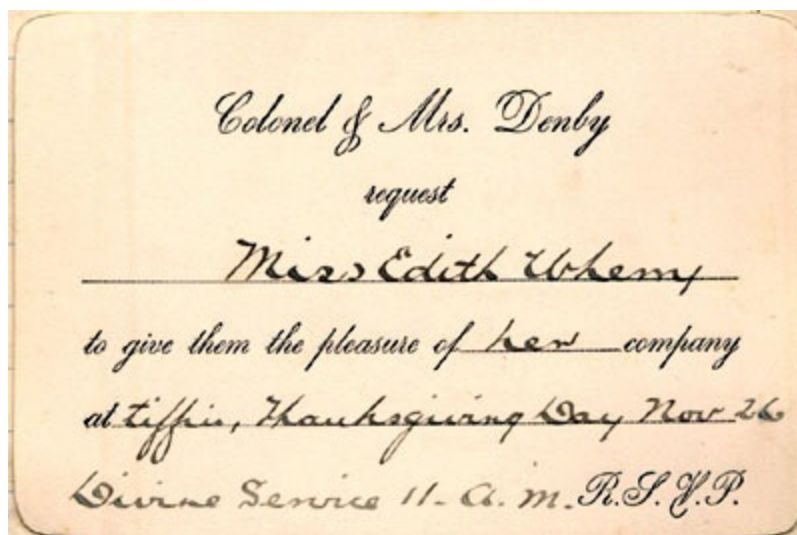 Colonel & Mrs. Denby
request
Miss Edith Wherry
to give them the pleasure of her company
at tiffin, Thanksgiving Day Nov 26
Divine Service 11- A. M. R. S. V. P.